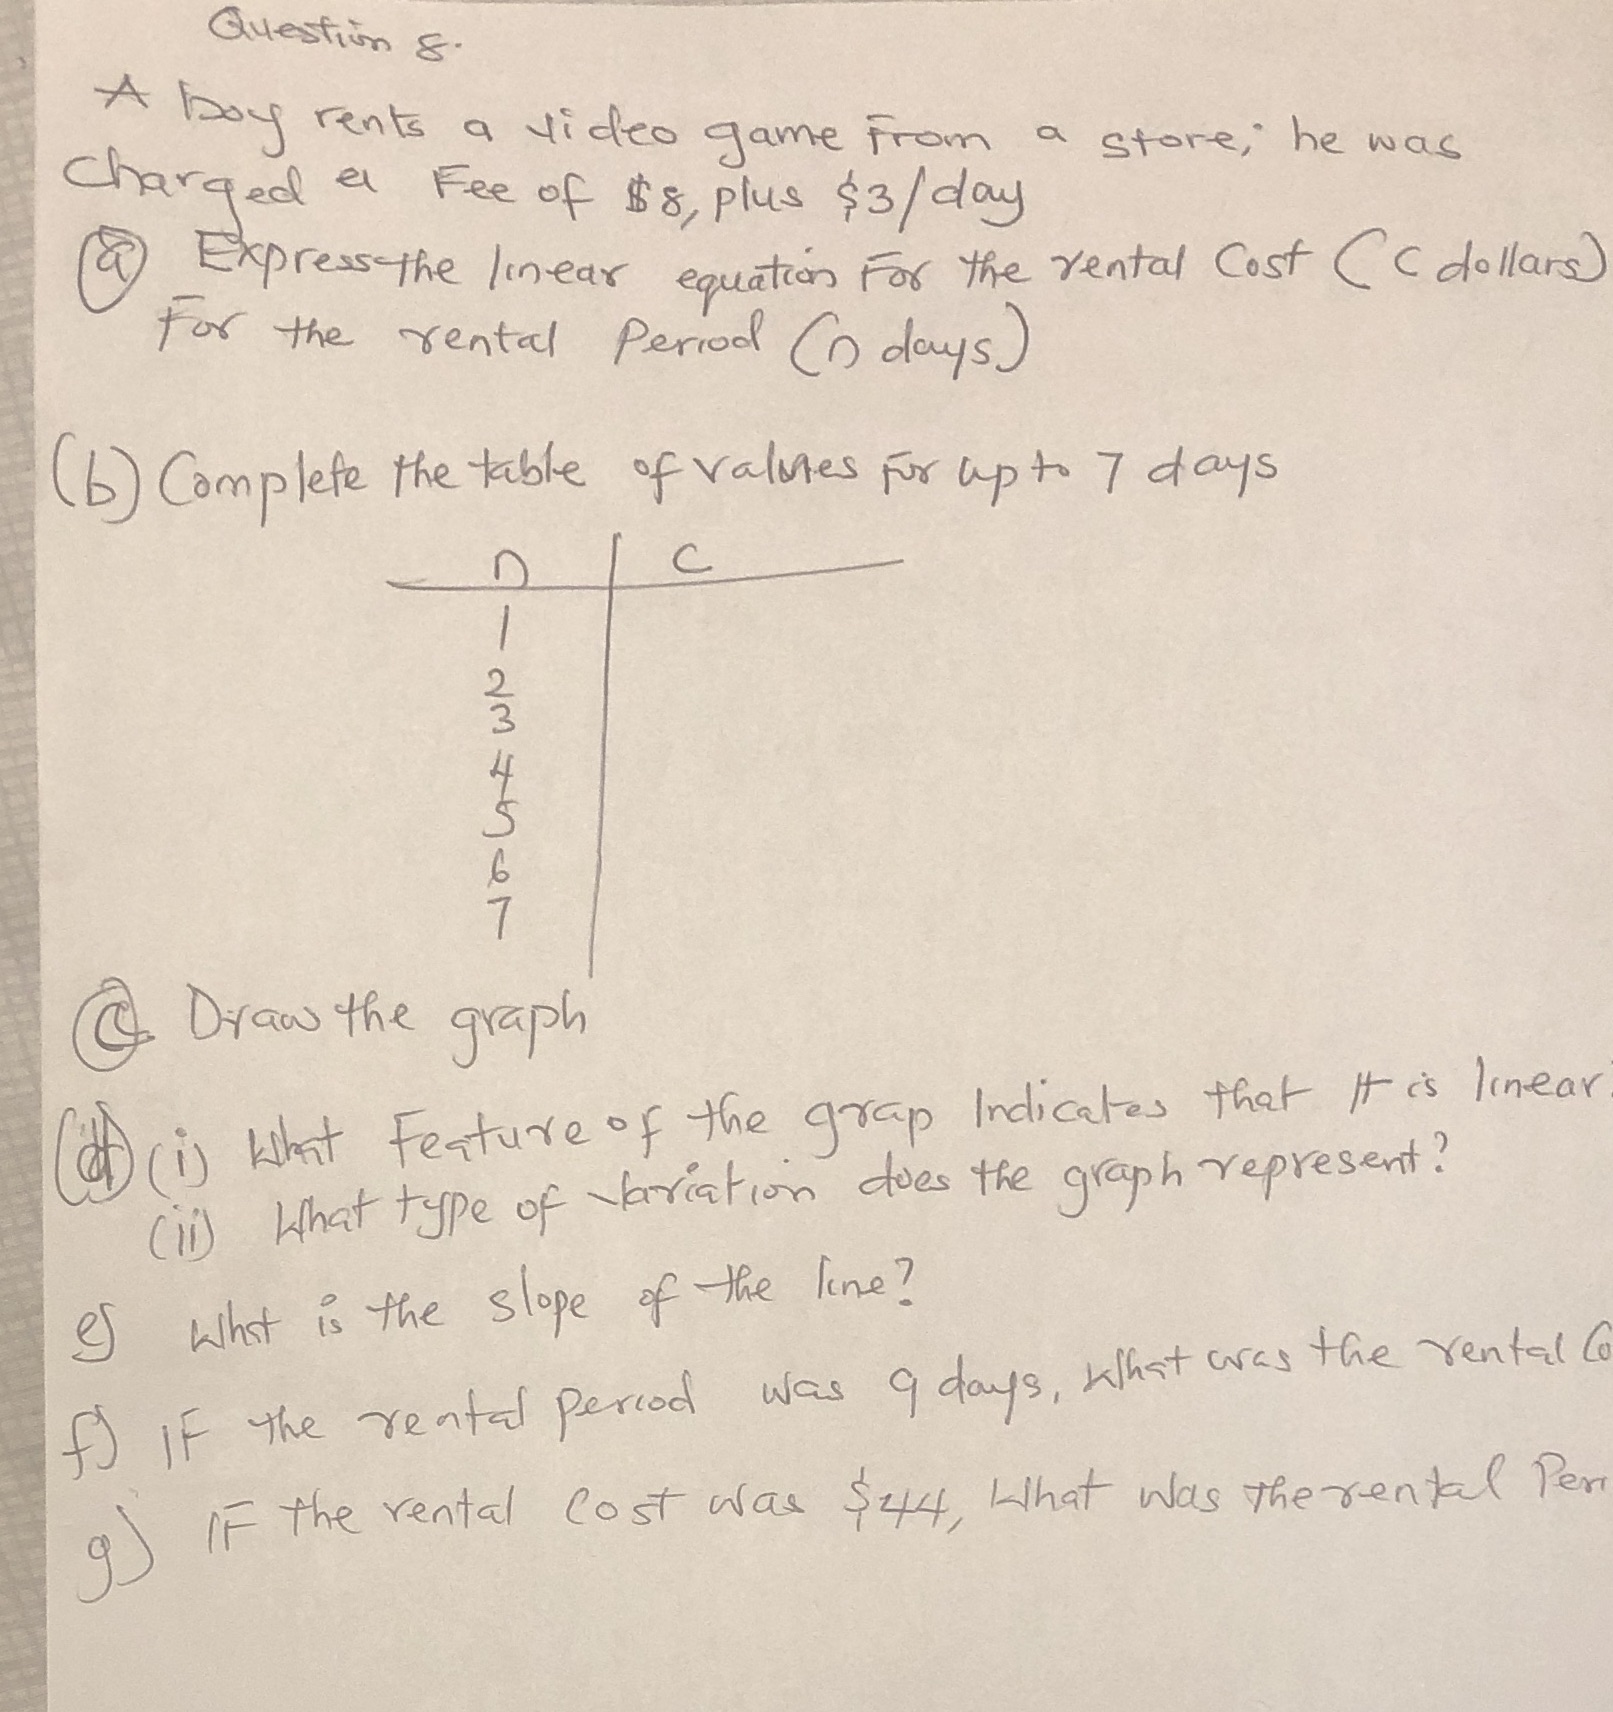 Question 8.
A boy rents a video game from a store; he was
charged a Fee of $8, plus $3/day
(a) Express the linear equation For the rental Cost (C dollars)
For the rental Period (n days)
(b) Complete the table of values for up to 7 days
n C
1
2
3
4
5
6
7
(C) Draw the graph
(d) (i) What Feature of the grap Indicates that It is linear?
(ii) What type of variation does the graph represent?
e) What is the slope of the line?
f) IF the rental Period was 9 days, What was the rental Co
g) IF the rental Cost was $44, What was the rental Peri